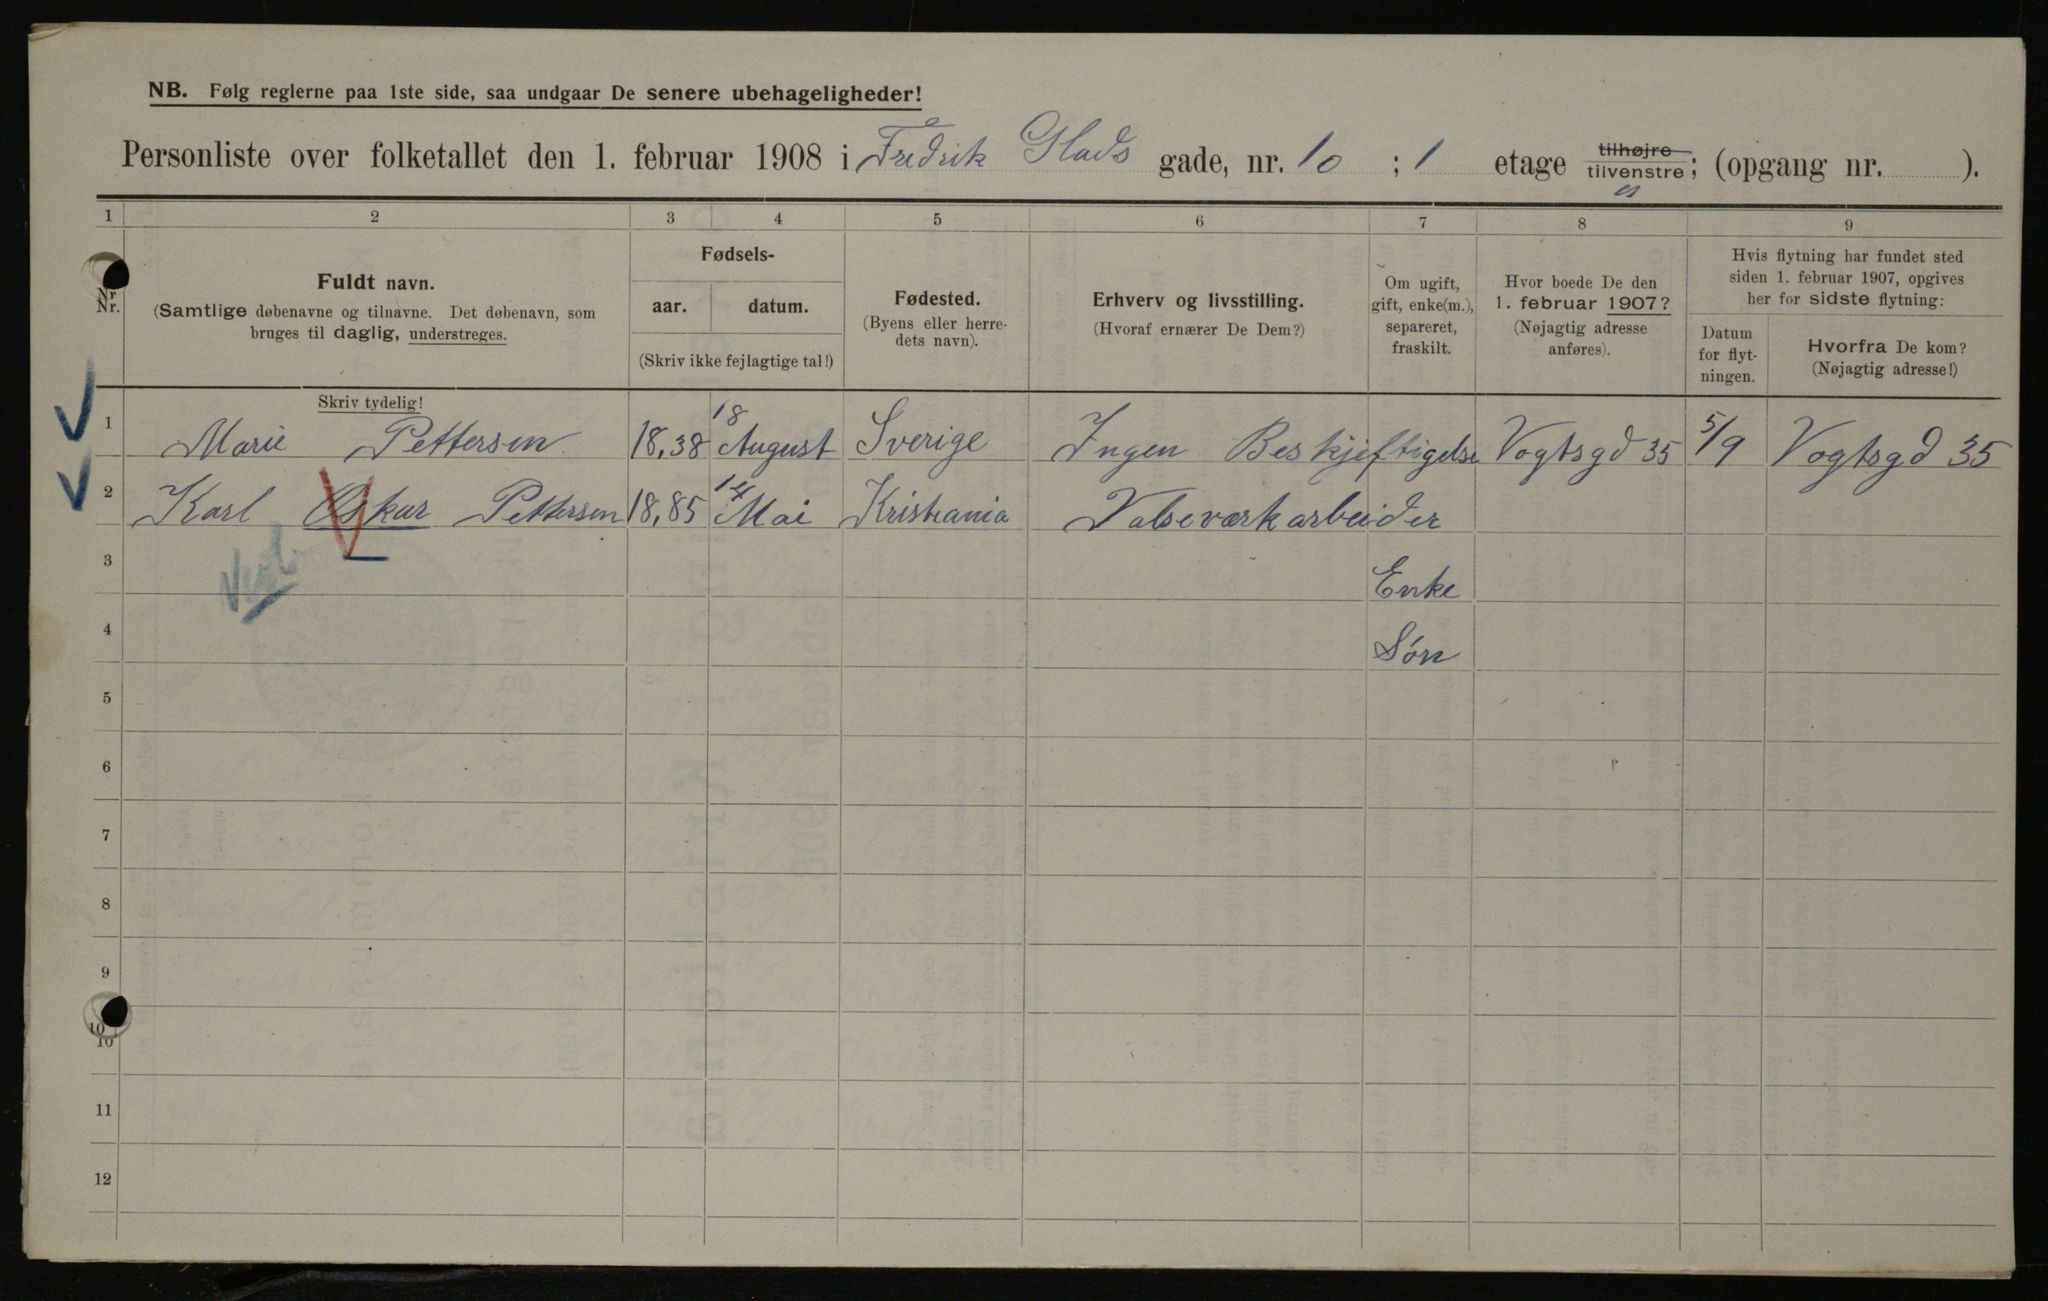 NB. Følg reglerne paa 1ste side, saa undgaar De senere ubehageligheder!
Personliste over folketallet den 1. februar 1908 i Fredrik Glads gade, nr. 10 ; 1 etage tilhøjre tilvenstre ; (opgang nr. ).
1 2 3 4 5 6 7 8 9
Nr.
Nr.
Fuldt navn.
(Samtlige døbenavne og tilnavne. Det døbenavn, som
bruges til daglig, understreges.
Skriv tydelig!
Fødsels-
aar. datum.
(Skriv ikke fejlagtige tal!)
Fødested.
(Byens eller herre-
dets navn).
Erhverv og livsstilling.
(Hvoraf ernærer De Dem?)
Om ugift,
gift, enke(m.),
separeret,
fraskilt.
Hvor boede De den
1. februar 1907?
(Nøjagtig adresse
anføres).
Hvis flytning har fundet sted
siden 1. februar 1907, opgives
her for sidste flytning:
Datum
for flyt-
ningen.
Hvorfra De kom?
(Nøjagtig adresse!)
1 Marie Pettersen 18,38 18 August Sverige Ingen Beskjeftigelse Vogtsgd 35 5/9 Vogtsgd 35
2 Karl Oskar Pettersen 18,85 14 Mai Kristiania Valseværkarbeider
3 Enke
4 Sön
5
6
7
8
9
10
10
11
12